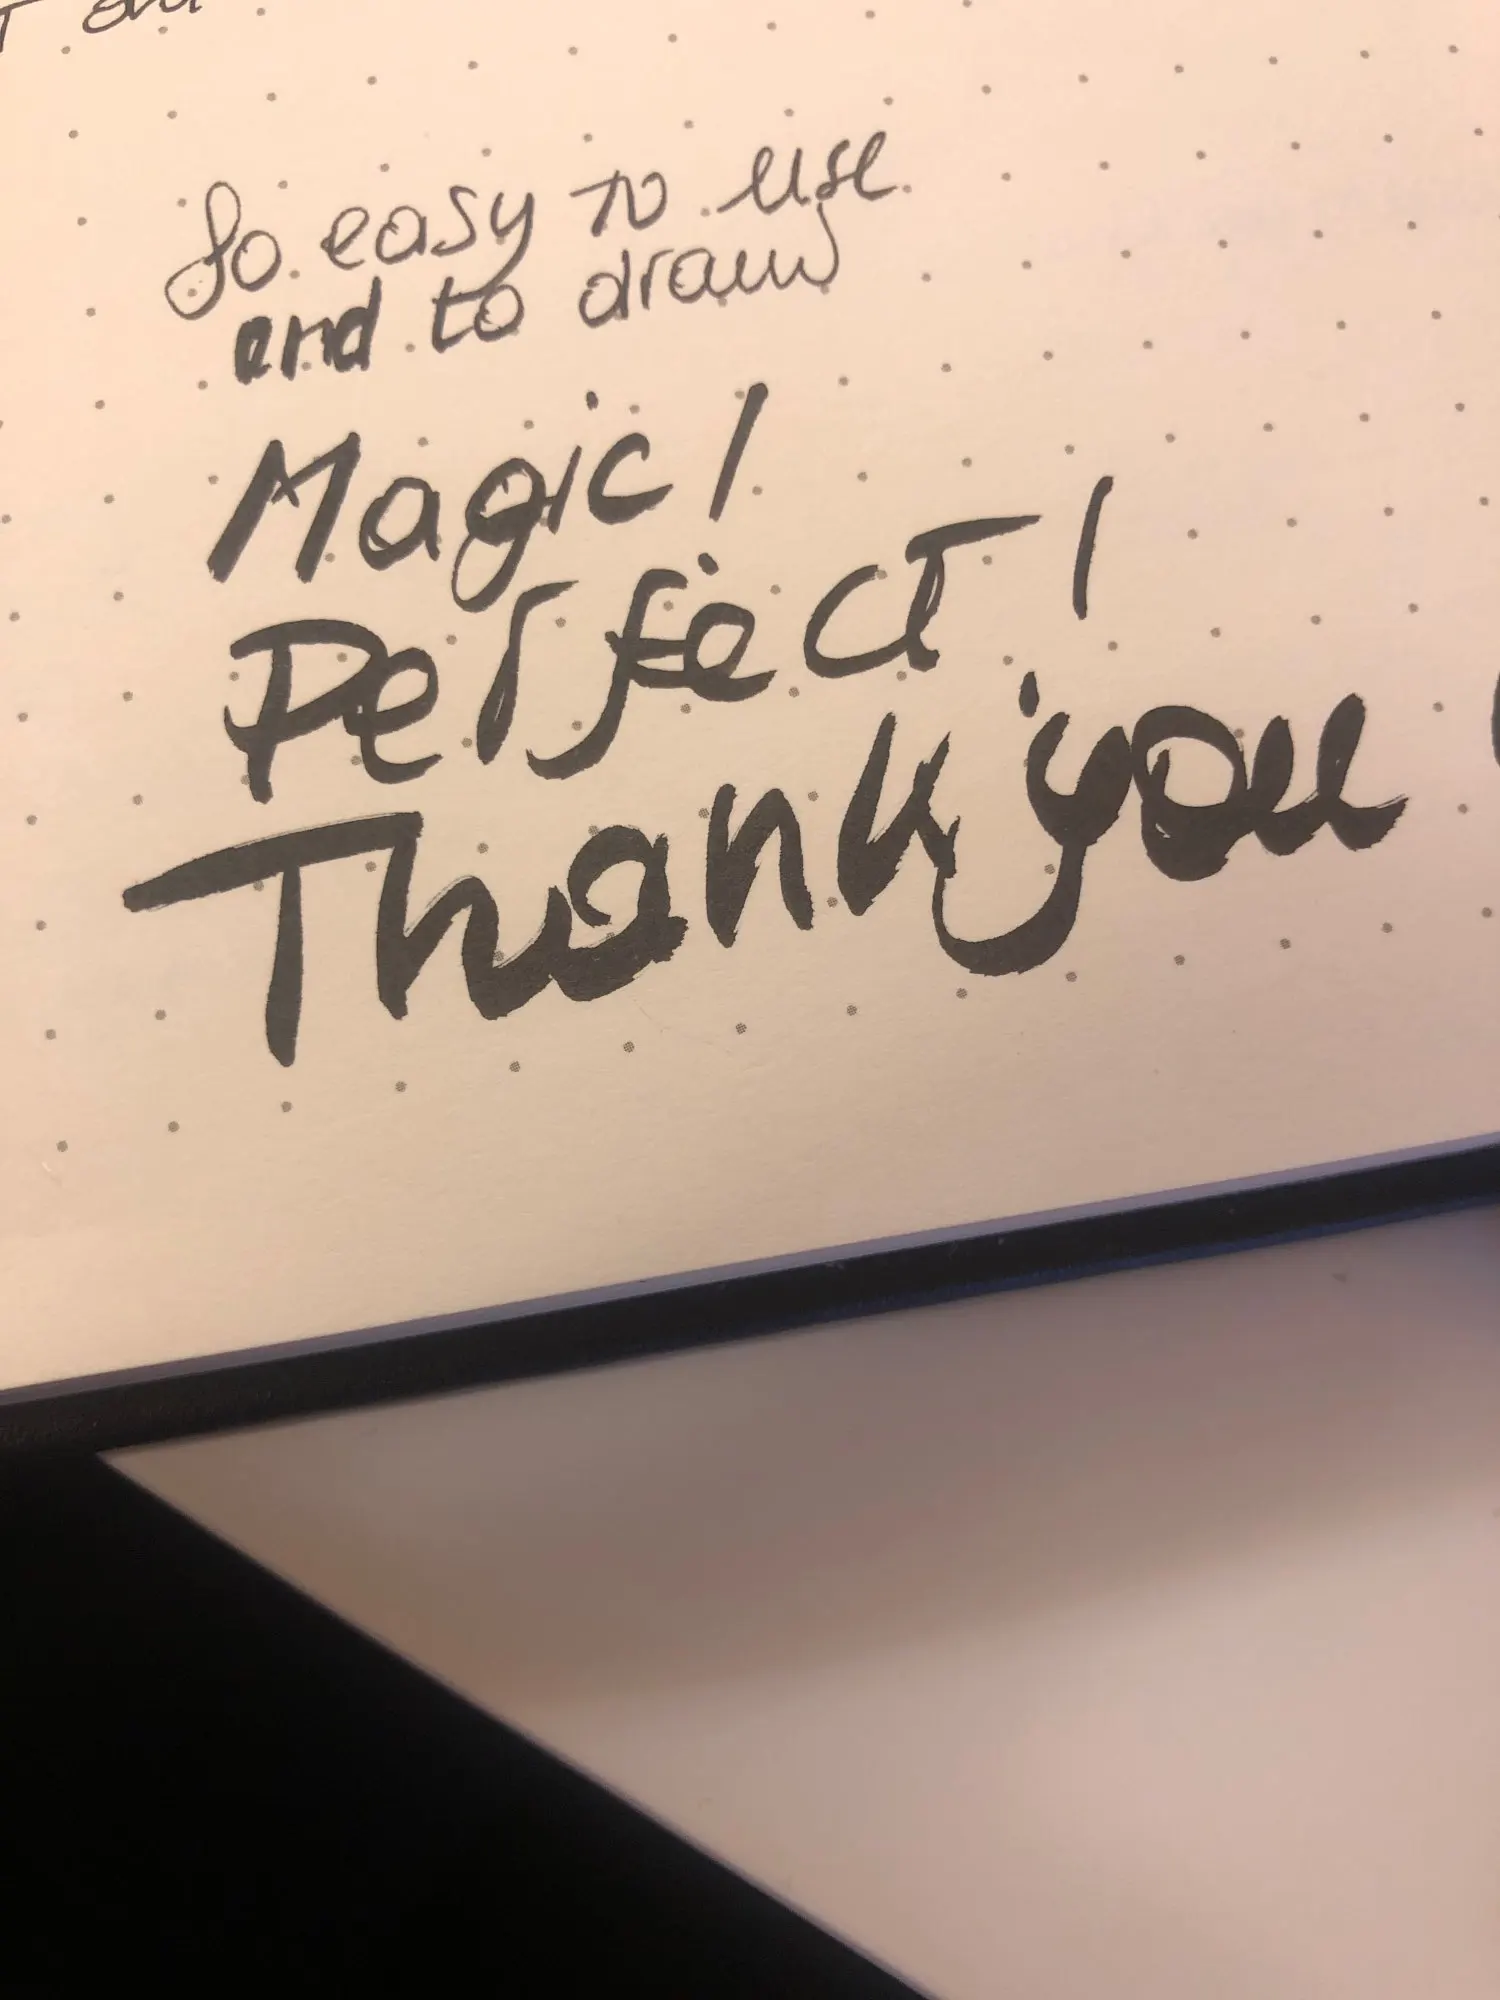 So easy to use
and to draw
Magic!
Perfect!
Thank you